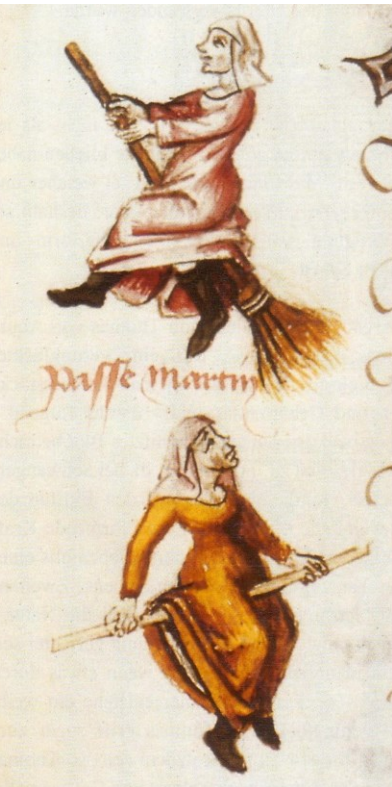 passe martin